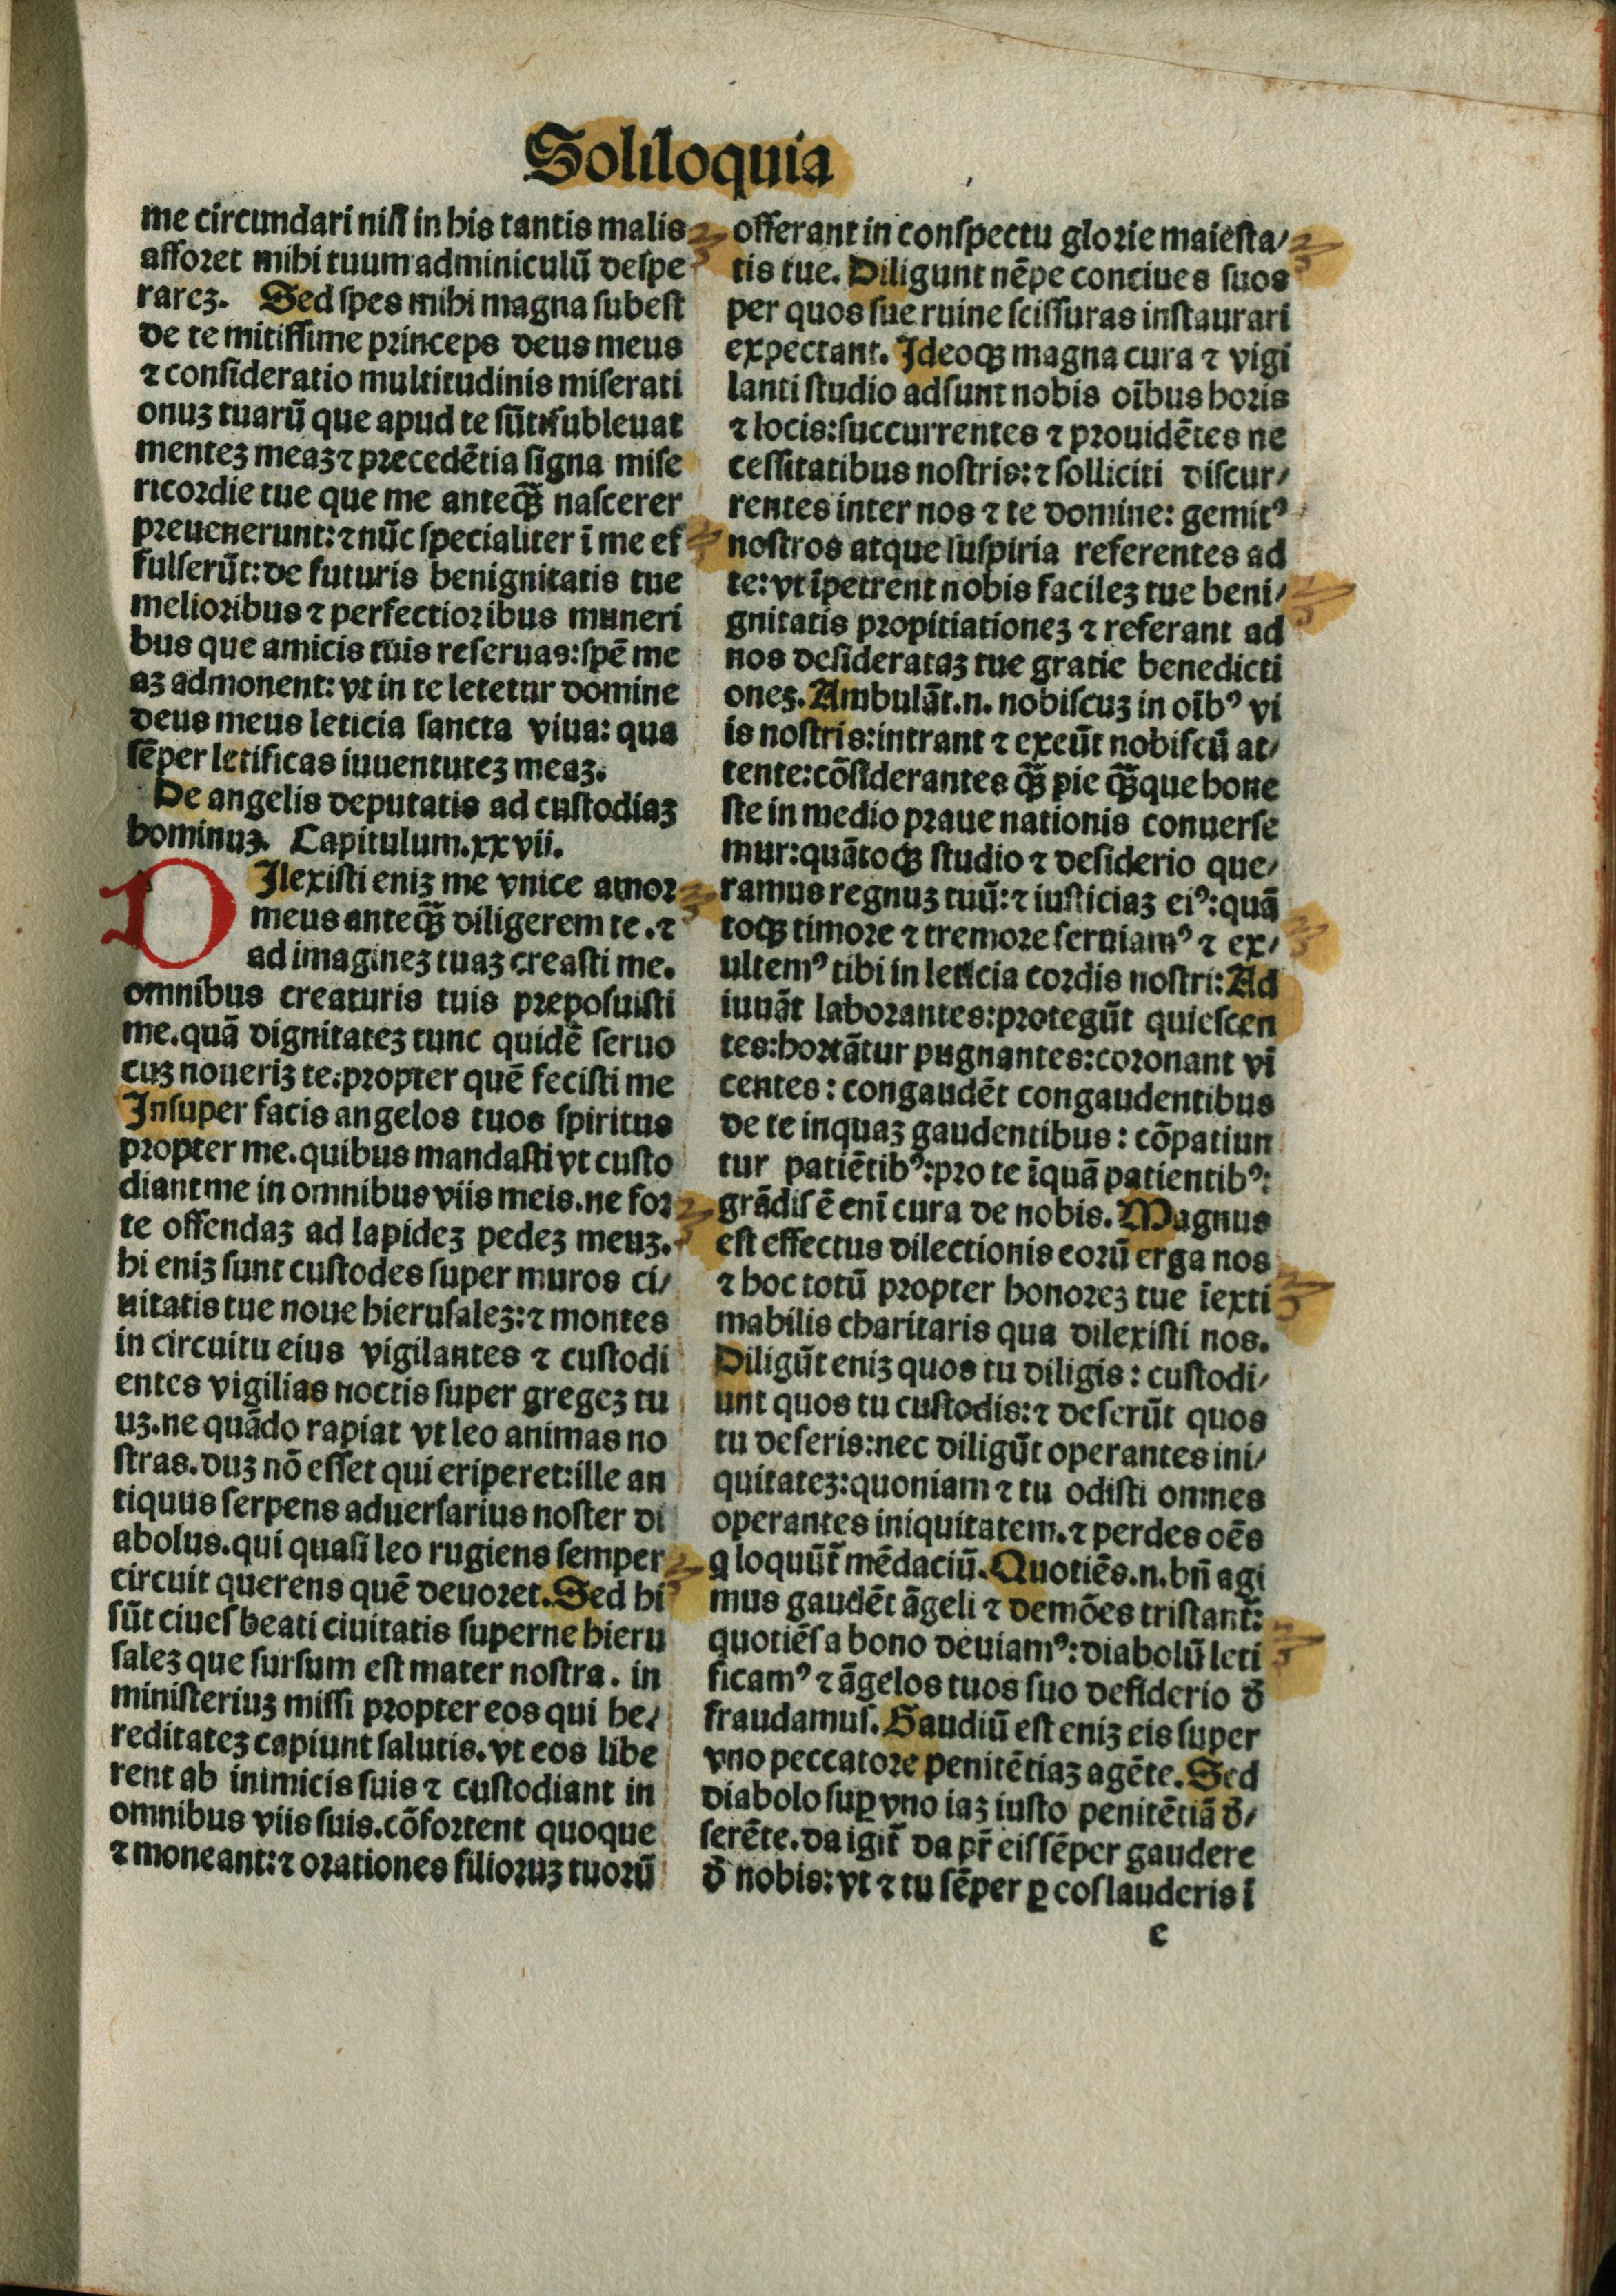 Soliloquia
me circundari niſi in his tantis malis
afforet mihi tuum adminiculū deſpe
rareꝫ. Sed ſpes mihi magna ſubeſt
de te mitiſſime princeps deus meus
⁊ conſideratio multitudinis miſerati
onuꝫ tuarū que apud te ſūt: ſubleuat
menteꝫ meaꝫ ⁊ precedētia ſigna miſe
ricordie tue que me anteꝙ̄ naſcerer
preuenerunt: ⁊ nūc ſpecialiter ī me ef
fulſerūt: de futuris benignitatis tue
melioribus ⁊ perfectioribus muneri
bus que amicis tuis reſeruas: ſpē me
aꝫ admonent: vt in te letetur domine
deus meus leticia ſancta viua: qua
ſēper letificas iuuentuteꝫ meaꝫ.
De angelis deputatis ad cuſtodiaꝫ
hominuꝫ. Capitulum. xxvii.
DIlexiſti eniꝫ me vnice amor
meus anteꝙ̄ diligerem te. ⁊
ad imagineꝫ tuaꝫ creaſti me.
omnibus creaturis tuis prepoſuiſti
me. quā dignitateꝫ tunc quidē ſeruo
cuꝫ noueriꝫ te: propter quē feciſti me
Inſuper facis angelos tuos ſpiritus
propter me. quibus mandaſti vt cuſto
diant me in omnibus viis meis. ne for
te offendaꝫ ad lapideꝫ pedeꝫ meuꝫ.
hi eniꝫ ſunt cuſtodes ſuper muros ci/
uitatis tue noue hieruſaleꝫ: ⁊ montes
in circuitu eius vigilantes ⁊ cuſtodi
entes vigilias noctis ſuper gregeꝫ tu
uꝫ. ne quādo rapiat vt leo animas no
ſtras. duꝫ nō eſſet qui eriperet: ille an
tiquus ſerpens aduerſarius noſter di
abolus. qui quaſi leo rugiens ſemper
circuit querens quē deuoret. Sed hi
ſūt ciueſ beati ciuitatis ſuperne hieru
ſaleꝫ que ſurſum eſt mater noſtra. in
miniſteriuꝫ miſſi propter eos qui he/
reditateꝫ capiunt ſalutis. vt eos libe
rent ab inimicis ſuis ⁊ cuſtodiant in
omnibus viis ſuis. cōfortent quoque
⁊ moneant: ⁊ orationes filioruꝫ tuorū
offerant in conſpectu glorie maieſta/
tis tue. Diligunt nēpe conciues ſuos
per quos ſue ruine ſciſſuras inſtaurari
expectant. Ideoqꝫ magna cura ⁊ vigi
lanti ſtudio adſunt nobis oībus horis
⁊ locis: ſuccurrentes ⁊ prouidētes ne
ceſſitatibus noſtris: ⁊ ſolliciti diſcur/
rentes inter nos ⁊ te domine: gemitꝰ
noſtros atque ſuſpiria referentes ad
te: vt īpetrent nobis facileꝫ tue beni/
gnitatis propitiationeꝫ ⁊ referant ad
nos deſiderataꝫ tue gratie benedicti
oneꝫ. Ambulāt. n. nobiſcuꝫ in oībꝰ vi
is noſtris: intrant ⁊ exeūt nobiſcū at/
tente: cōſiderantes ꝙ̄ pie ꝙ̄que hone
ſte in medio praue nationis conuerſe
mur: quātoqꝫ ſtudio ⁊ deſiderio que/
ramus regnuꝫ tuū: ⁊ iuſticiaꝫ eiꝰ: quā
toqꝫ timore ⁊ tremore ſeruiamꝰ ⁊ ex/
ultemꝰ tibi in leticia cordis noſtri: Ad
iuuāt laborantes: protegūt quieſcen
tes: hortātur pugnantes: coronant vī
centes: congaudēt congaudentibus
de te inquaꝫ gaudentibus: cōpatiun
tur patiētibꝰ: pro te īquā patientibꝰ:
grādiſ ē enī cura de nobis. Magnus
eſt effectus dilectionis eorū erga nos
⁊ hoc totū propter honoreꝫ tue īexti
mabilis charitaris qua dilexiſti nos.
Diligūt eniꝫ quos tu diligis: cuſtodi/
unt quos tu cuſtodis: ⁊ deſerūt quos
tu deſeris: nec diligūt operantes ini/
quitateꝫ: quoniam ⁊ tu odiſti omnes
operantes iniquitatem. ⁊ perdes oēs
q loquūt̄ mēdaciū. Quotiēs. n. bn̄ agi
mus gaudēt āgeli ⁊ demōes triſtant̄:
quotiēſ a bono deuiamꝰ: diabolū leti
ficamꝰ ⁊ āgelos tuos ſuo deſiderio d̄
fraudamuſ. Gaudiū eſt eniꝫ eis ſuper
vno peccatore penitētiaꝫ agēte. Sed
diabolo ſuꝑ vno iaꝫ iuſto penitētiā d̄/
ſerēte. da igit̄ da pr̄ eiſ ſēper gaudere
d̄ nobis: vt ⁊ tu ſēper ꝑ eoſ lauderis ī
c